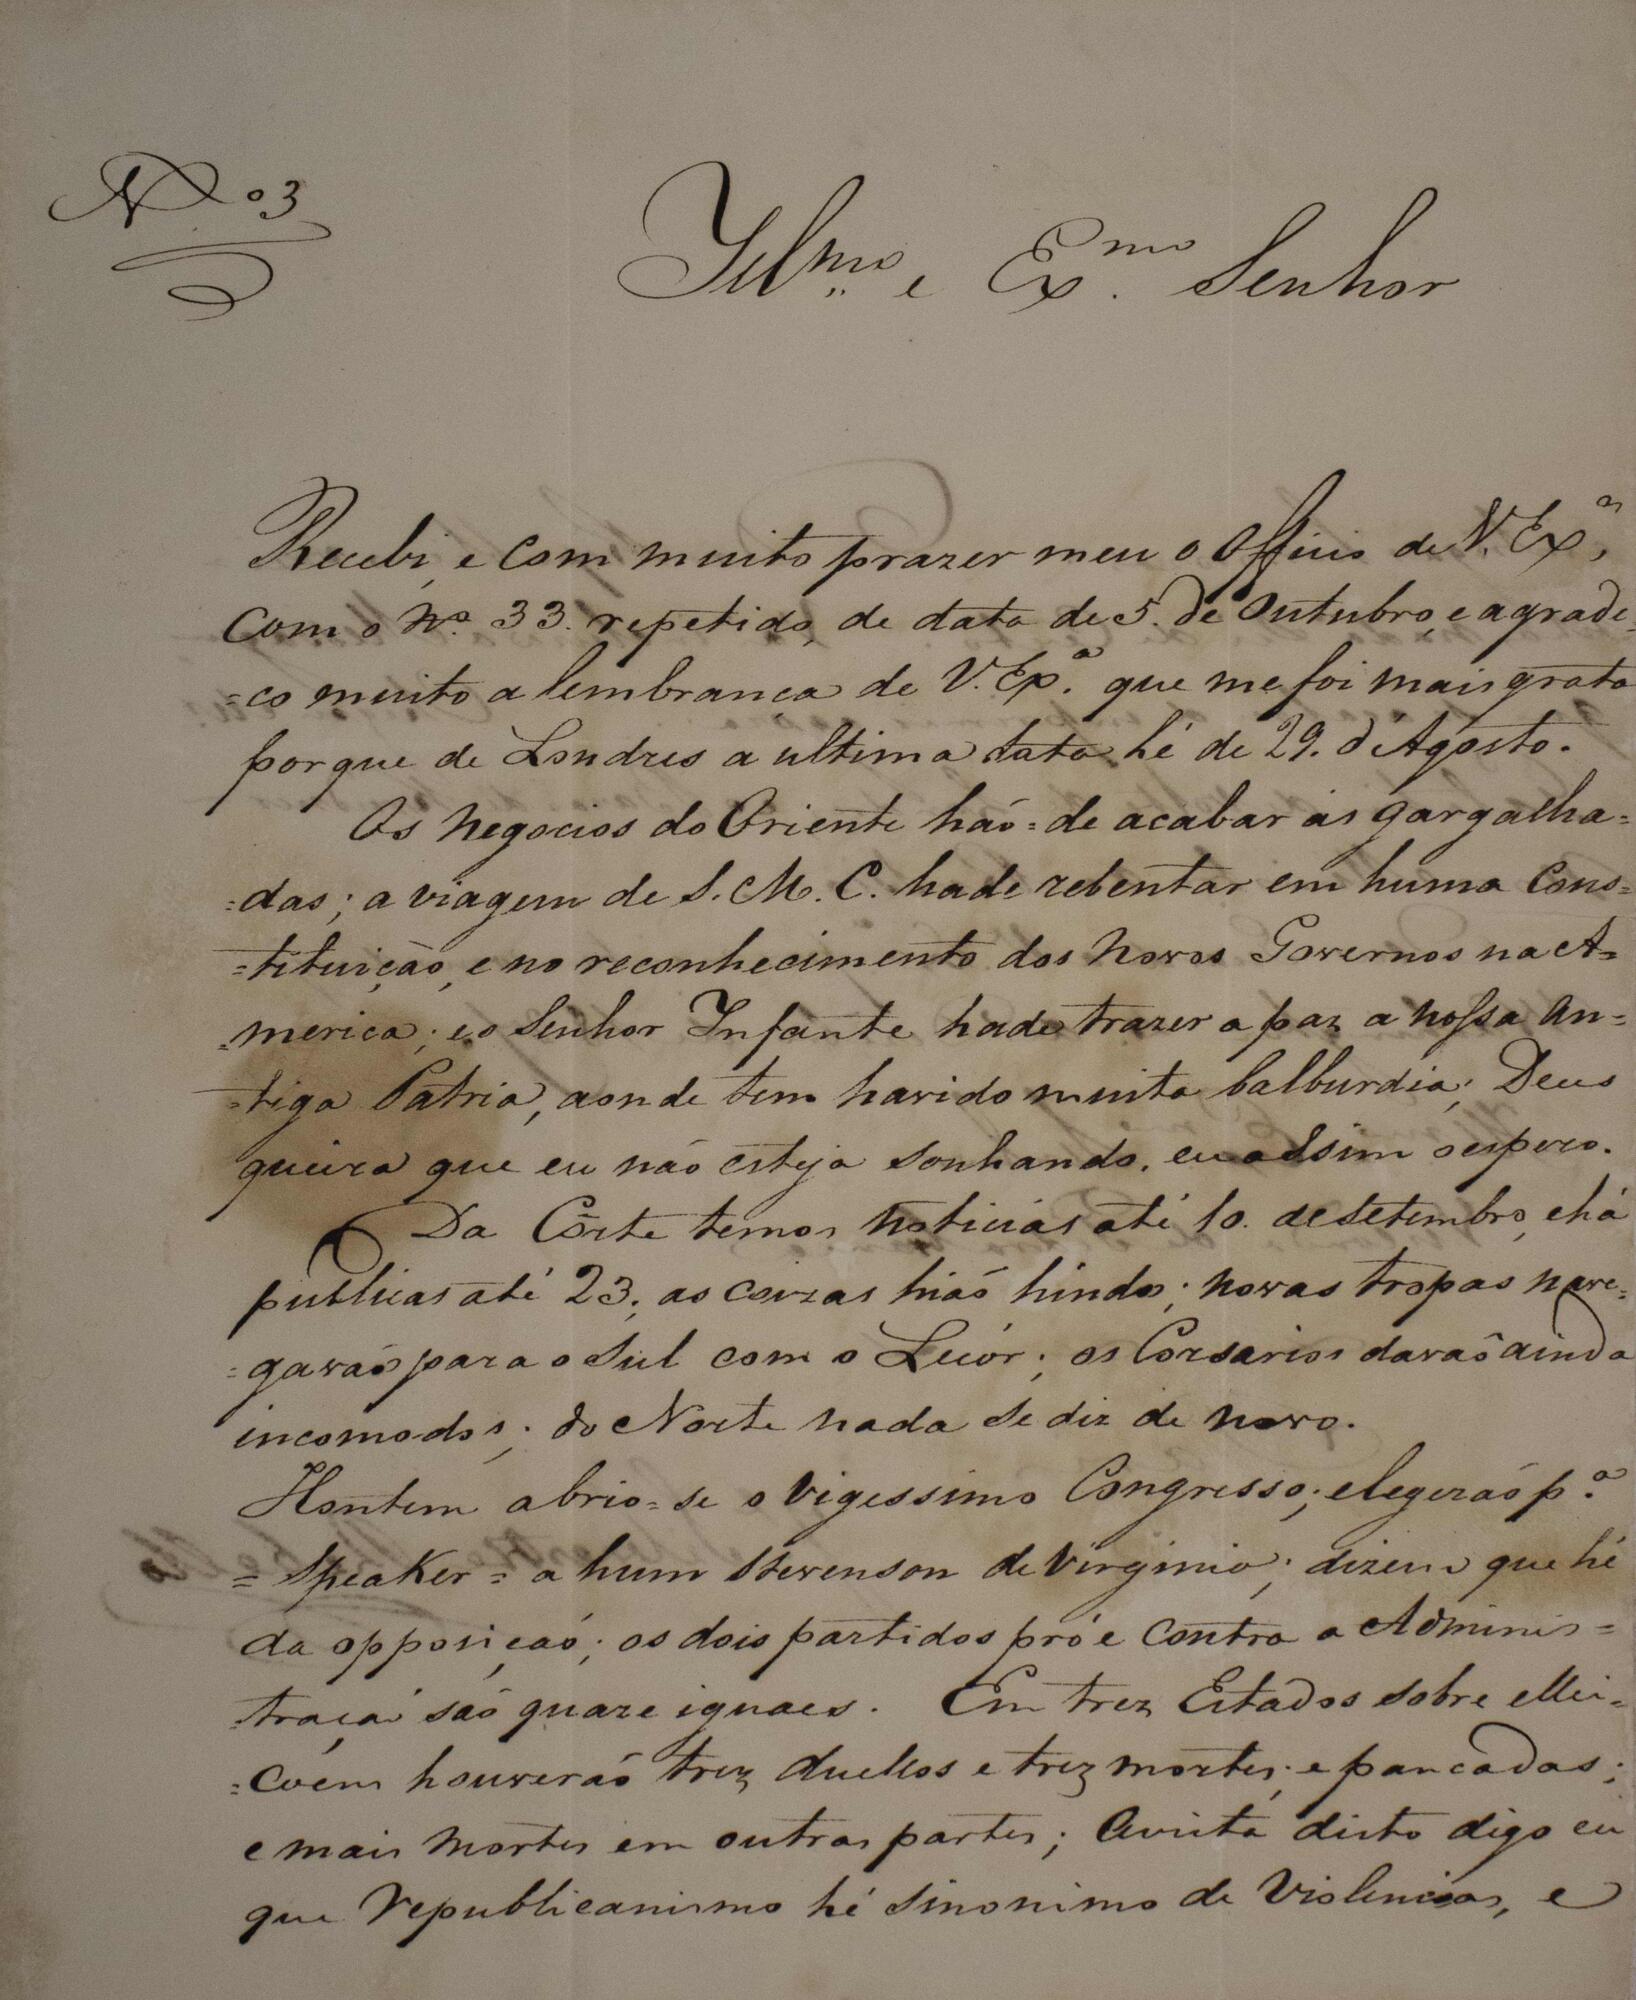 N.º 3
Illmo e Exmo Senhor
Recebi, e com muito prazer meu o Officio de V. Exª,
com o Nº 33. repetido, de data de 5. de Outubro, e agrade-
=co muito a lembrança de V. Exª. que me foi mais grata
porque de Londres a ultima data hé de 29. d'Agosto.
Os negocios do Oriente háo=de acabar ás gargalha=
=das; a viagem de S. M. C. hade rebentar em huma Cons=
=tituição, e no reconhecimento dos novos Governos na A=
=merica; e o Senhor Infante hade trazer a paz a nossa An=
=tiga Patria, aonde tem havido muita balburdia; Deus
queira que eu não esteja sonhando, eu assim o espero.
Da Côrte temos noticias até 10. de Setembro, e há
publicas até 23; as coizas hiaó hindo; novas tropas nave=
=gavaó para o Sul com o Lecór; os Corsarios davaõ ainda
incomodos; do Norte nada se diz de novo.
Hontem abrio=se o vigessimo Congresso; elegeraó pª
=Speaker= a hum Stevenson de Virginia; dizem que hé
da opposiçaó; os dois partidos pró e contra a Adminis=
=traçá saó quaze iguaes. Em trez Estados sobre ellei=
=coém houveraó trez duellos e trez mortes; e pancadas;
e mais mortes em outras partes; Avista disto digo eu
que republicanismo hé sinonimo de Violencias, e